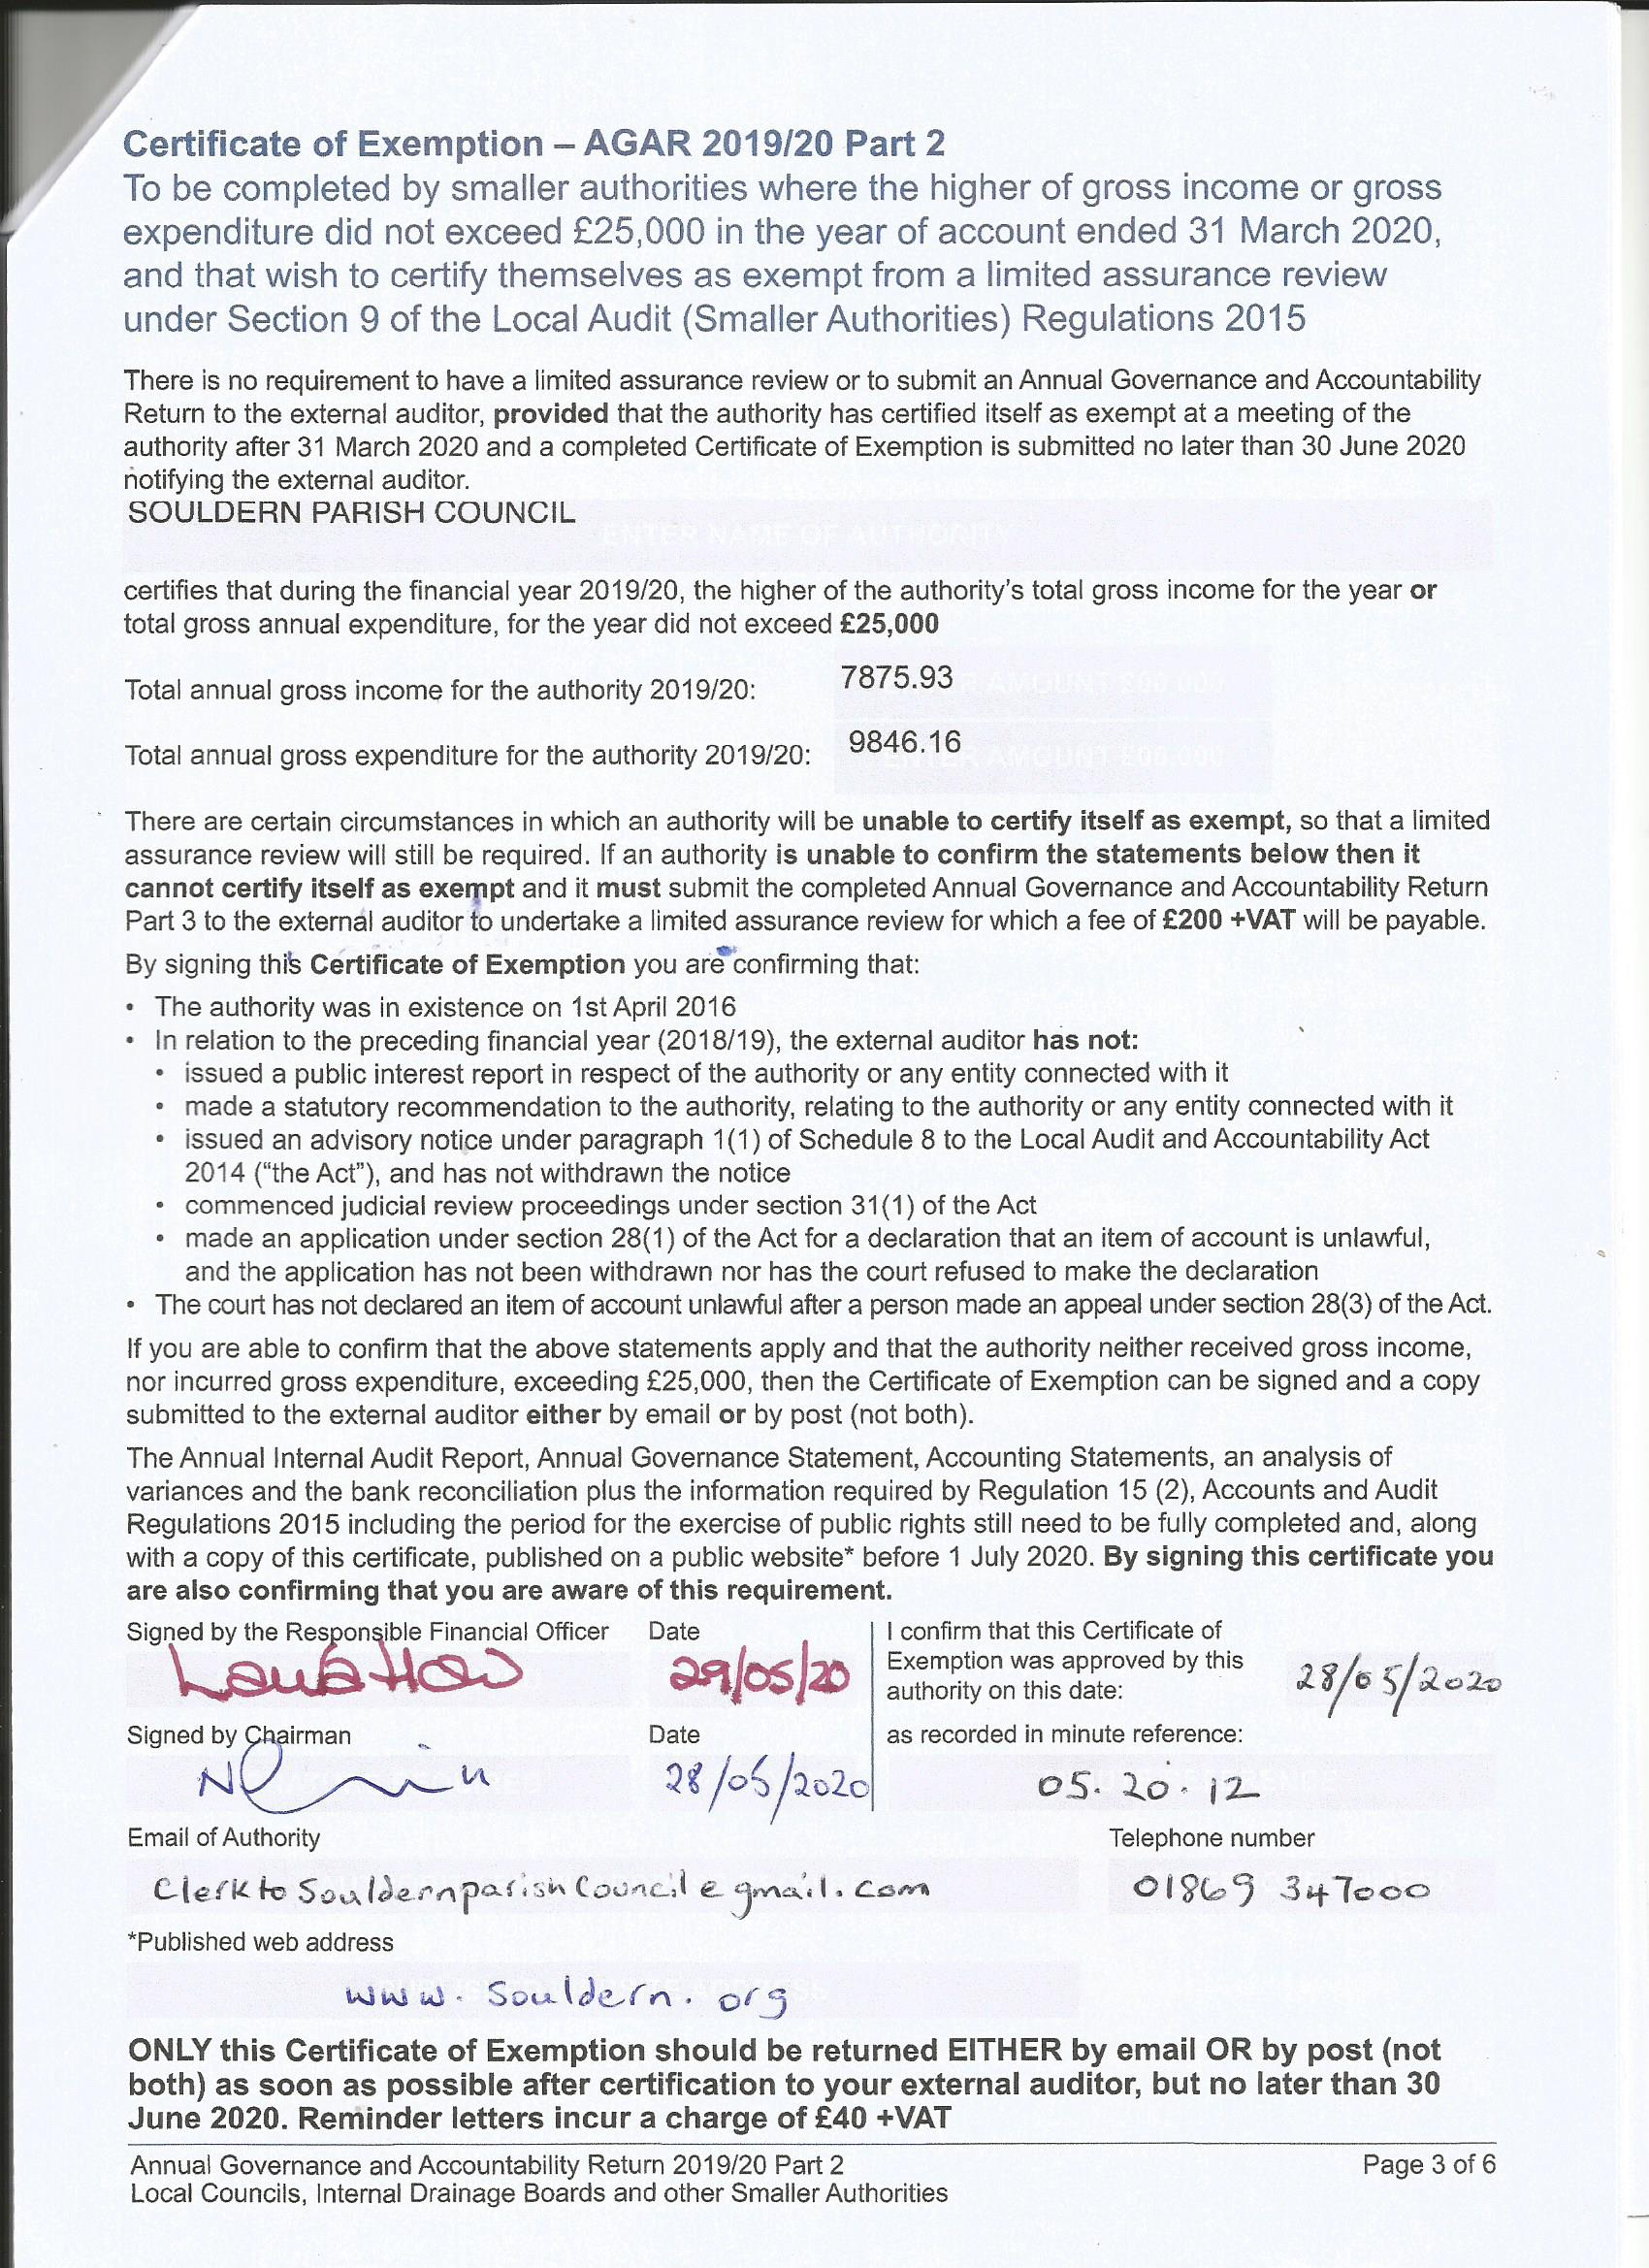 Certificate of Exemption – AGAR 2019/20 Part 2
To be completed by smaller authorities where the higher of gross income or gross
expenditure did not exceed £25,000 in the year of account ended 31 March 2020,
and that wish to certify themselves as exempt from a limited assurance review
under Section 9 of the Local Audit (Smaller Authorities) Regulations 2015
There is no requirement to have a limited assurance review or to submit an Annual Governance and Accountability
Return to the external auditor, provided that the authority has certified itself as exempt at a meeting of the
authority after 31 March 2020 and a completed Certificate of Exemption is submitted no later than 30 June 2020
notifying the external auditor.
SOULDERN PARISH COUNCIL
ENTER NAME OF AUTHORITY
certifies that during the financial year 2019/20, the higher of the authority's total gross income for the year or
total gross annual expenditure, for the year did not exceed £25,000
Total annual gross income for the authority 2019/20: 7875.93
Total annual gross expenditure for the authority 2019/20: 9846.16
There are certain circumstances in which an authority will be unable to certify itself as exempt, so that a limited
assurance review will still be required. If an authority is unable to confirm the statements below then it
cannot certify itself as exempt and it must submit the completed Annual Governance and Accountability Return
Part 3 to the external auditor to undertake a limited assurance review for which a fee of £200 +VAT will be payable.
By signing this Certificate of Exemption you are confirming that:
• The authority was in existence on 1st April 2016
• In relation to the preceding financial year (2018/19), the external auditor has not:
• issued a public interest report in respect of the authority or any entity connected with it
• made a statutory recommendation to the authority, relating to the authority or any entity connected with it
• issued an advisory notice under paragraph 1(1) of Schedule 8 to the Local Audit and Accountability Act
2014 ("the Act"), and has not withdrawn the notice
• commenced judicial review proceedings under section 31(1) of the Act
• made an application under section 28(1) of the Act for a declaration that an item of account is unlawful,
and the application has not been withdrawn nor has the court refused to make the declaration
• The court has not declared an item of account unlawful after a person made an appeal under section 28(3) of the Act.
If you are able to confirm that the above statements apply and that the authority neither received gross income,
nor incurred gross expenditure, exceeding £25,000, then the Certificate of Exemption can be signed and a copy
submitted to the external auditor either by email or by post (not both).
The Annual Internal Audit Report, Annual Governance Statement, Accounting Statements, an analysis of
variances and the bank reconciliation plus the information required by Regulation 15 (2), Accounts and Audit
Regulations 2015 including the period for the exercise of public rights still need to be fully completed and, along
with a copy of this certificate, published on a public website* before 1 July 2020. By signing this certificate you
are also confirming that you are aware of this requirement.
Signed by the Responsible Financial Officer Date
29/05/20
I confirm that this Certificate of
Exemption was approved by this
authority on this date: 28/05/2020
Signed by Chairman Date
28/05/2020
as recorded in minute reference:
05.20.12
Email of Authority Telephone number
Clerkto Souldernparish Council@gmail.com 01869 347000
*Published web address
www.Souldern.org
ONLY this Certificate of Exemption should be returned EITHER by email OR by post (not
both) as soon as possible after certification to your external auditor, but no later than 30
June 2020. Reminder letters incur a charge of £40 +VAT
Annual Governance and Accountability Return 2019/20 Part 2 Page 3 of 6
Local Councils, Internal Drainage Boards and other Smaller Authorities